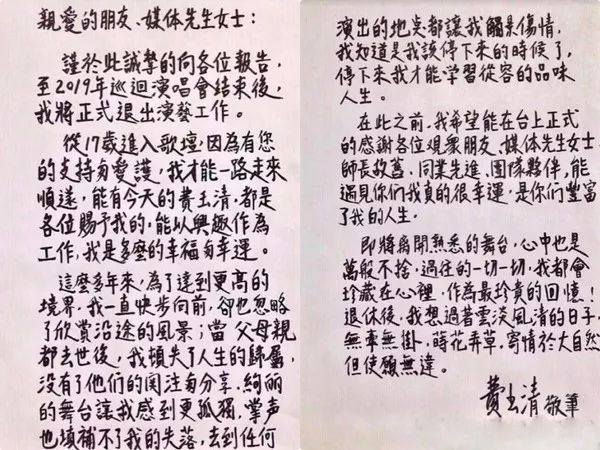 親愛的朋友、媒体先生女士：
謹於此誠摯的向各位報告，
至2019年巡迴演唱會結束後，
我將正式退出演藝工作。
從17歲進入歌壇，因為有您
的支持與愛護，我才能一路走來
順遂，能有今天的費玉清，都是
各位賜予我的，能以興趣作為
工作，我是多麼的幸福與幸運。
這麼多年來，為了達到更高的
境界，我一直快步向前，卻也忽略
了欣賞沿途的風景；當父母親
都去世後，我頓失了人生的歸屬，
沒有了他們的関注與分享，絢麗
的舞台讓我感到更孤獨，掌声
也填補不了我的失落，去到任何
演出的地点都讓我觸景傷情，
我知道是我該停下來的時候了，
停下來我才能學習從容的品味
人生。
在此之前，我希望能在台上正式
的感謝各位觀衆朋友、媒体先生女士、
師長故舊、同業先進、團隊夥伴，能
遇見你們我真的很幸運，是你們豐富
了我的人生。
即將離開熟悉的舞台，心中也是
萬般不捨，過往的一切一切，我都會
珍藏在心裡，作為最珍貴的回憶！
退休後，我想過著雲淡風清的日子，
無牽無掛，蒔花弄草，寄情於大自然
但使願無違。
費玉清 敬筆